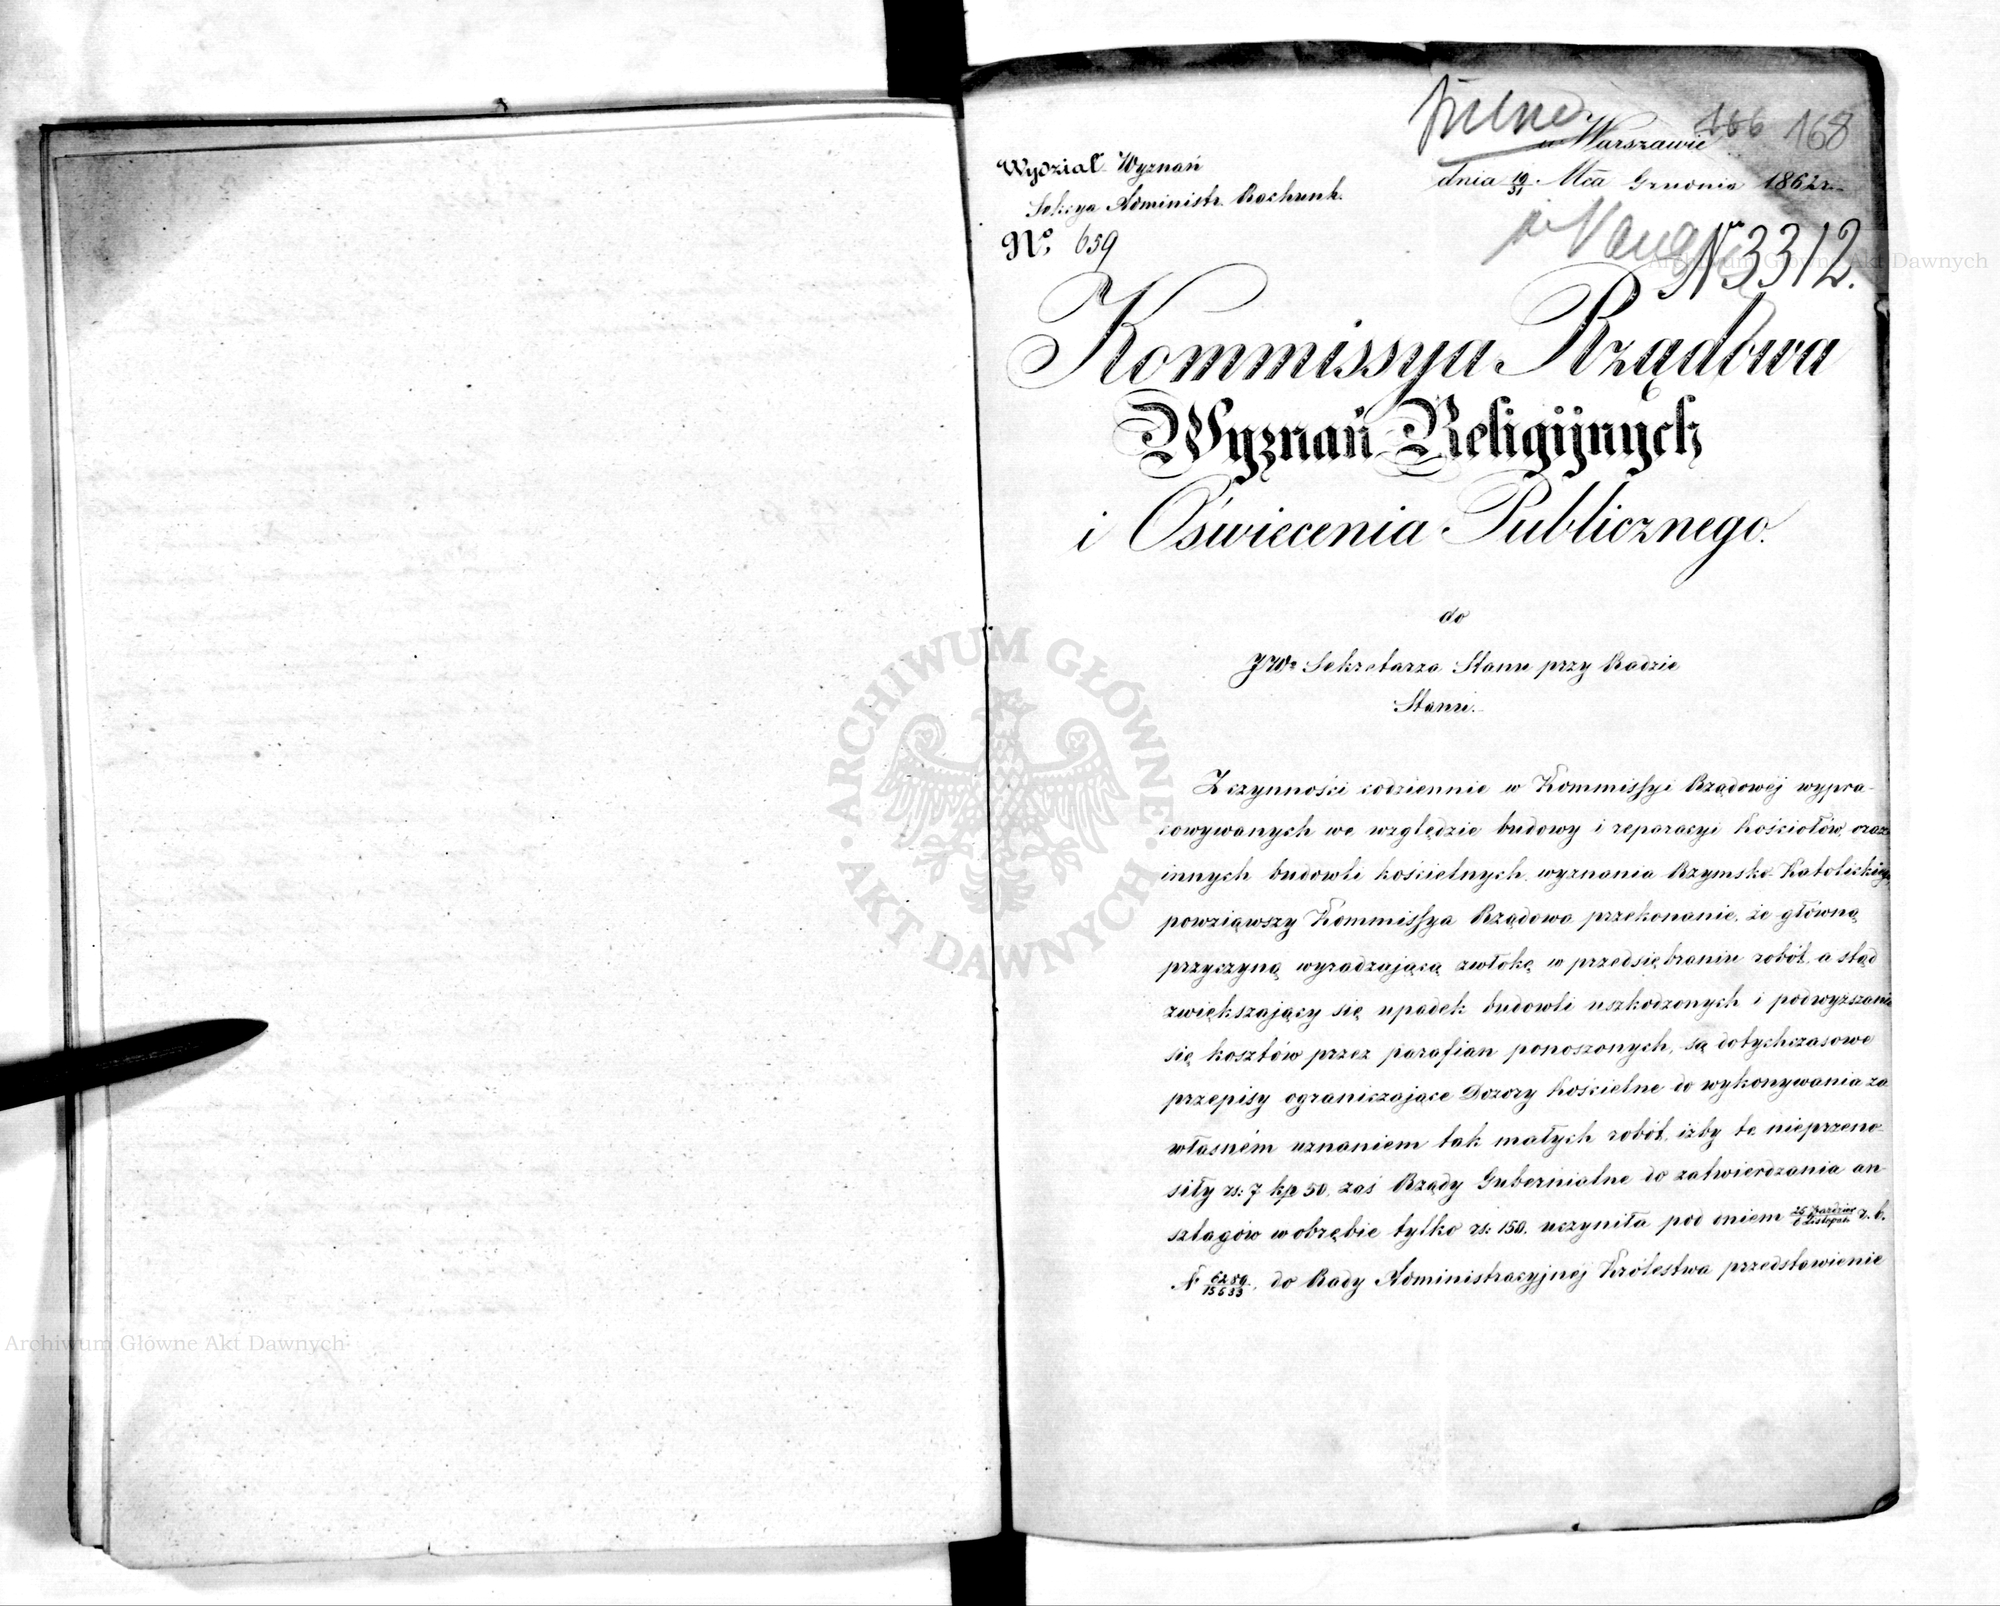 pilne
166 168
w Warszawie
Wydział Wyznań
dnia 19/31 Mca Grudnia 1862 r.
Sekcya Administr. Rachunk.
No. 659
N 3312.
Kommissya Rządowa
Wyznań Religijnych
i Oświecenia Publicznego.
do
JWo Sekretarza Stanu przy Radzie
Stanu.
Z czynności codziennie w Kommissyi Rządowéj wypra-
cowywanych we względzie budowy i reparacyi Kościołów, oraz
innych budowli kościelnych, wyznania Rzymsko Katolickiego,
powziąwszy Kommissya Rządowa przekonanie, że główną
przyczyną wyradzającą zwłokę w przedsiębraniu robót, a stąd
zwiększający się upadek budowli uszkodzonych i podwyższanie
się kosztów przez parafian ponoszonych, są dotychczasowe
przepisy ograniczające Dozory Kościelne do wykonywania za
własném uznaniem tak małych robót, izby te nieprzeno-
siły rs: 7 kp 50, zaś Rządy Gubernialne do zatwierdzania an-
szlagów w obrębie tylko rs: 150. uczyniła pod dniem 25 Paździer/6 Listopada r. b.
N 6289/15633, do Rady Administracyjnéj Królestwa przedstawienie
ARCHIWUM GŁÓWNE AKT DAWNYCH
Archiwum Główne Akt Dawnych
Archiwum Główne Akt Dawnych